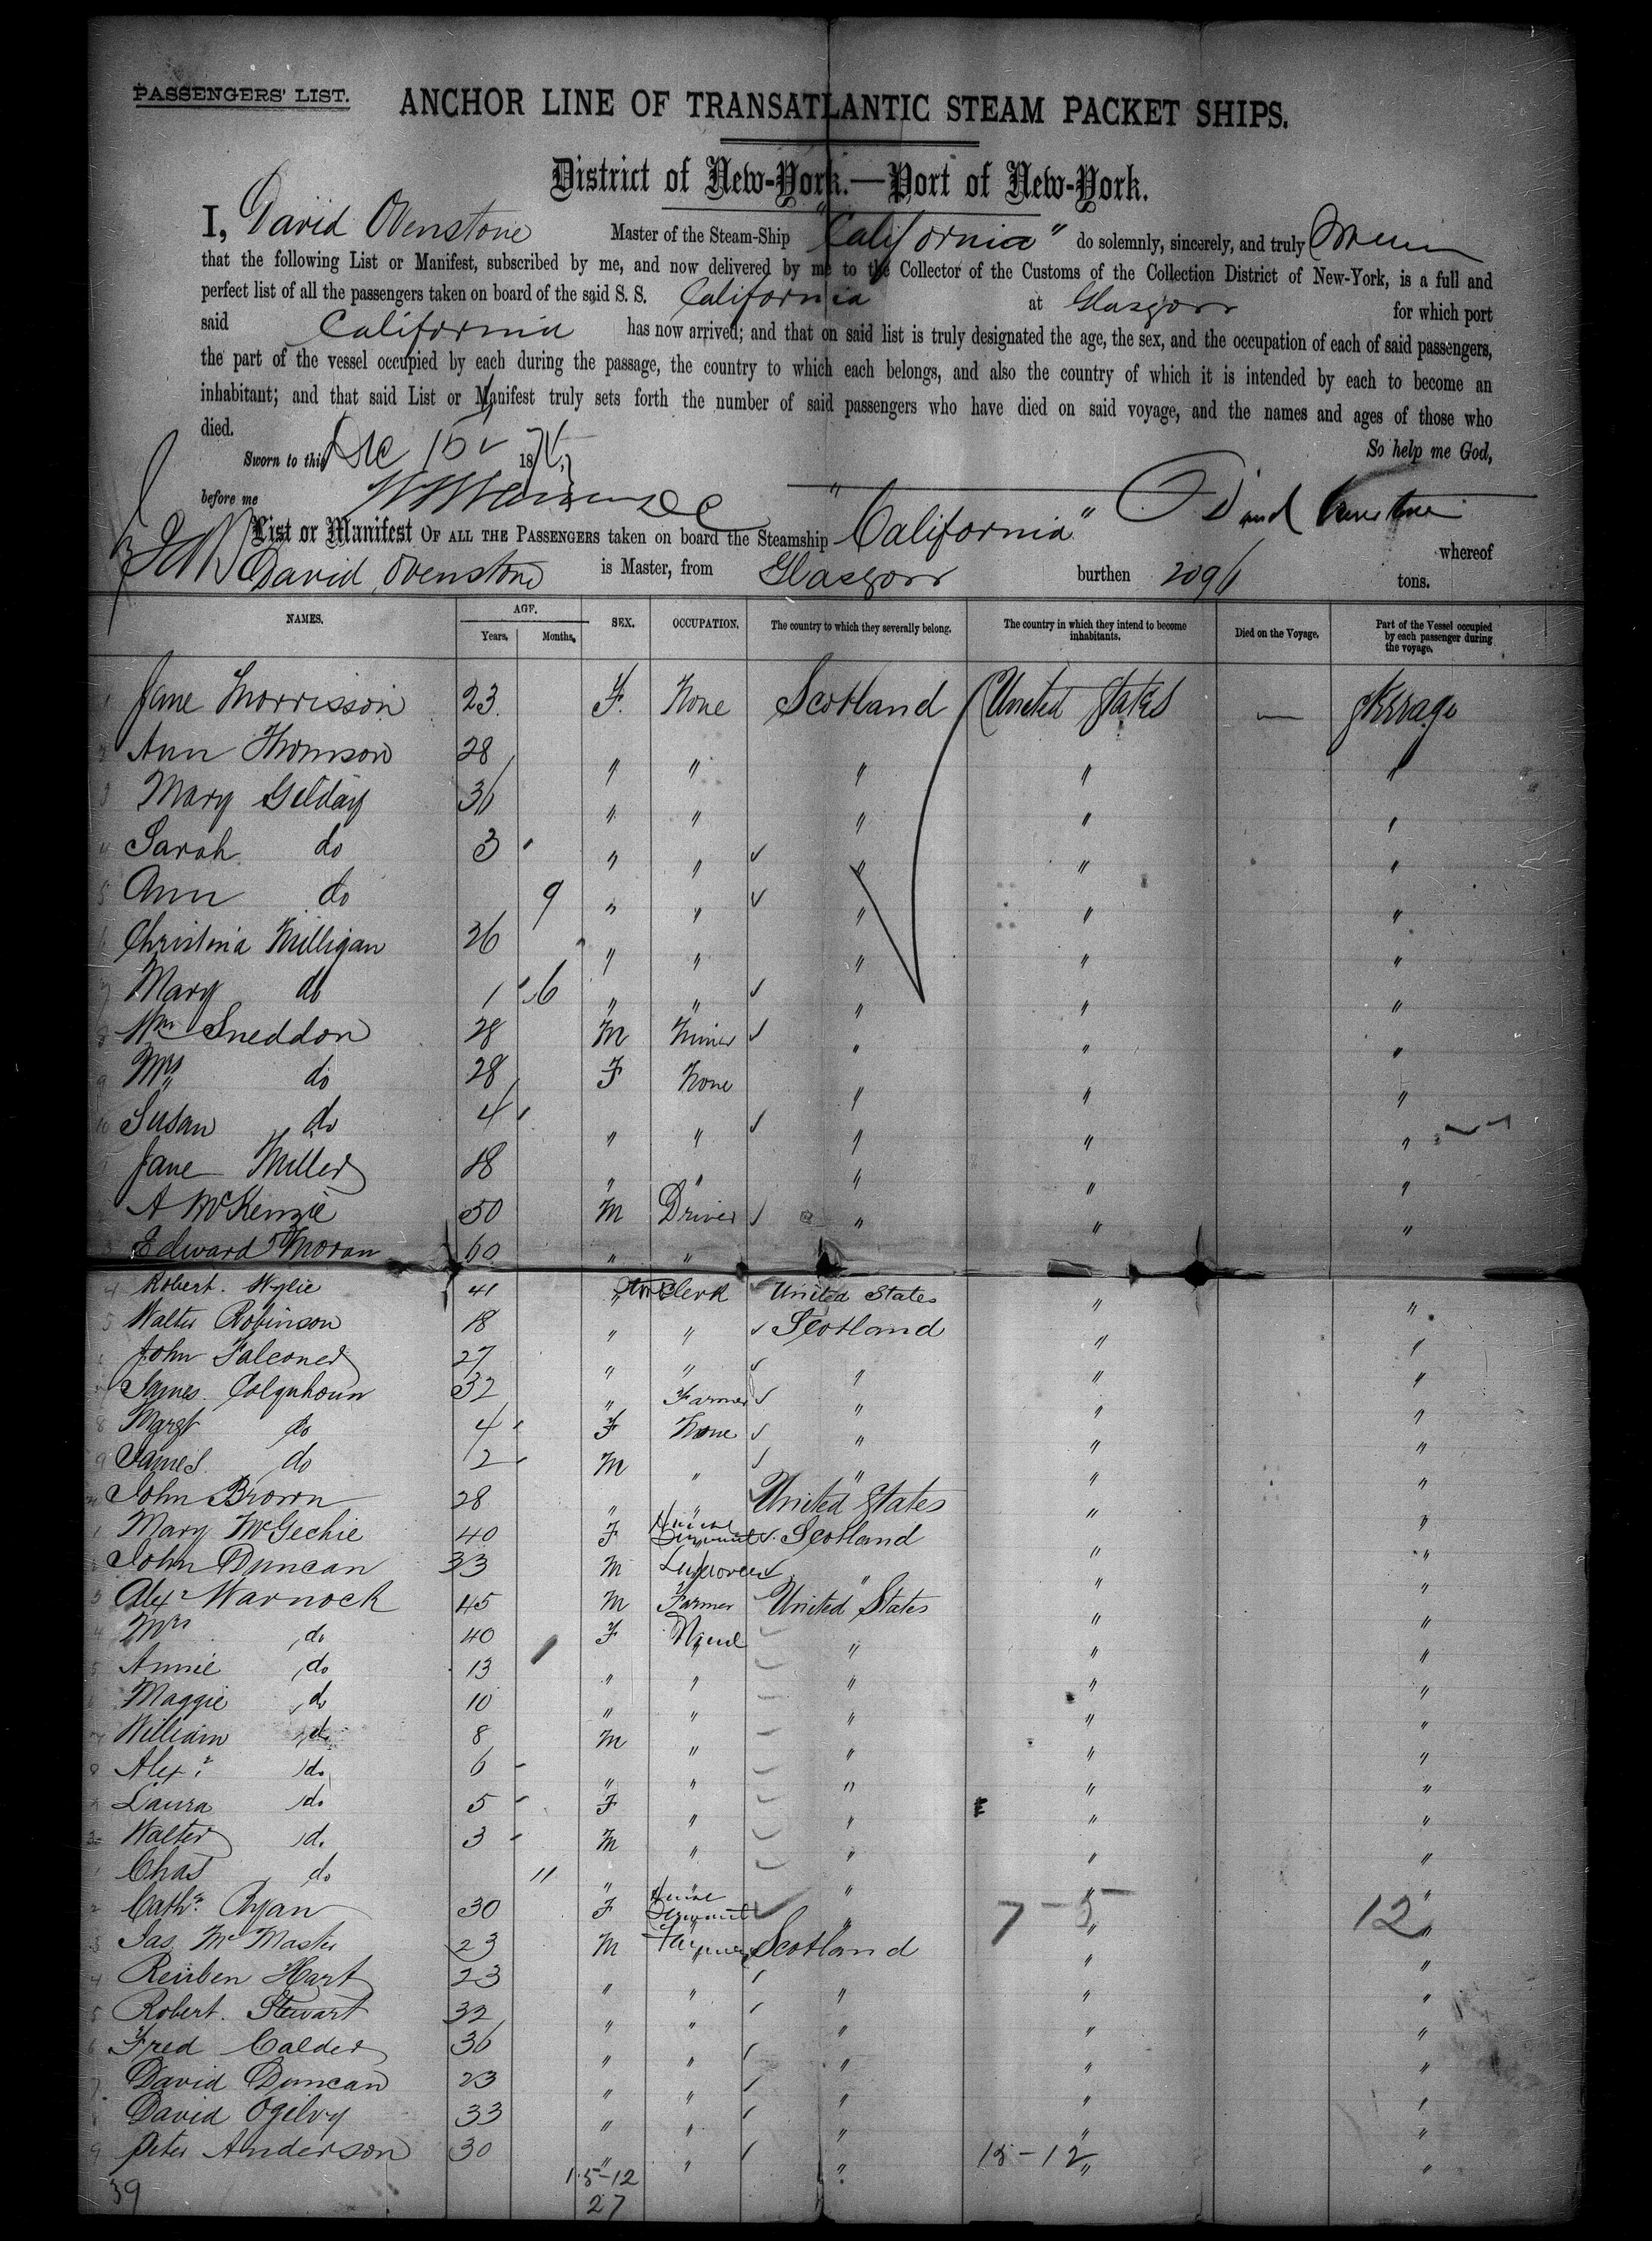 PASSENGERS' LIST.
ANCHOR LINE OF TRANSATLANTIC STEAM PACKET SHIPS.
District of New-York.—Port of New-York.
I, David Ovenstone Master of the Steam-Ship "California" do solemnly, sincerely, and truly swear
that the following List or Manifest, subscribed by me, and now delivered by me to the Collector of the Customs of the Collection District of New-York, is a full and
perfect list of all the passengers taken on board of the said S. S. California at Glasgow for which port
said California has now arrived; and that on said list is truly designated the age, the sex, and the occupation of each of said passengers,
the part of the vessel occupied by each during the passage, the country to which each belongs, and also the country of which it is intended by each to become an
inhabitant; and that said List or Manifest truly sets forth the number of said passengers who have died on said voyage, and the names and ages of those who
died.
So help me God,
Sworn to this Dec 18
before me
David Ovenstone
List or Manifest OF ALL THE PASSENGERS taken on board the Steamship "California" whereof
David Ovenstone is Master, from Glasgow burthen 2096 tons.
NAMES. AGE. Years. Months. SEX. OCCUPATION. The country to which they severally belong. The country in which they intend to become inhabitants. Died on the Voyage. Part of the Vessel occupied by each passenger during the voyage.
1 Jane Morrisson 23 F. None Scotland United States — Sterrage
2 Ann Thomson 28 " " " " "
3 Mary Gilday 36 " " " " "
4 Sarah do 3 " " " " "
5 Ann do 9 " " " " "
6 Christina Milligan 26 " " " " "
7 Mary do 1 6 " " " " "
8 Wm Sneddon 28 M Miner " " "
9 Mrs do 28 F None " " "
10 Susan do 4 " " " " "
Jane Miller 18 " " " " "
A McKenzie 50 M Driver " " "
3 Edward Moran 60 " "
4 Robert. Wylie 41 " Clerk United States " "
5 Walter Robinson 18 " " Scotland " "
John Falconer 27 " " " " "
James Colquhoun 32 " Farmer " " "
8 Margt do 4 F None " " "
9 James do 2 M " " " "
John Brown 28 " " United States " "
1 Mary McGechie 40 F Servant Scotland " "
John Duncan 33 M " " "
3 Alexr Warnock 45 M Farmer United States " "
4 Mrs do 40 F None " " "
5 Annie do 13 " " " " "
Maggie do 10 " " " " "
William do 8 M " " " "
8 Alexr do 6 " " " " "
Laura do 5 F " " " "
Walter do 3 M " " " "
1 Chas do 11 " " " " "
2 Cathn Ryan 30 F Servant " 7-5 " 12 "
3 Jas McMaster 23 M Scotland " "
4 Reuben Hart 23 " " " " "
5 Robert. Stewart 32 " " " " "
6 Fred Calder 36 " " " " "
7 David Duncan 23 " " " " "
David Ogilvy 33 " " " " "
9 Peter Anderson 30 " " " 15-12 " "
39 15-12
27